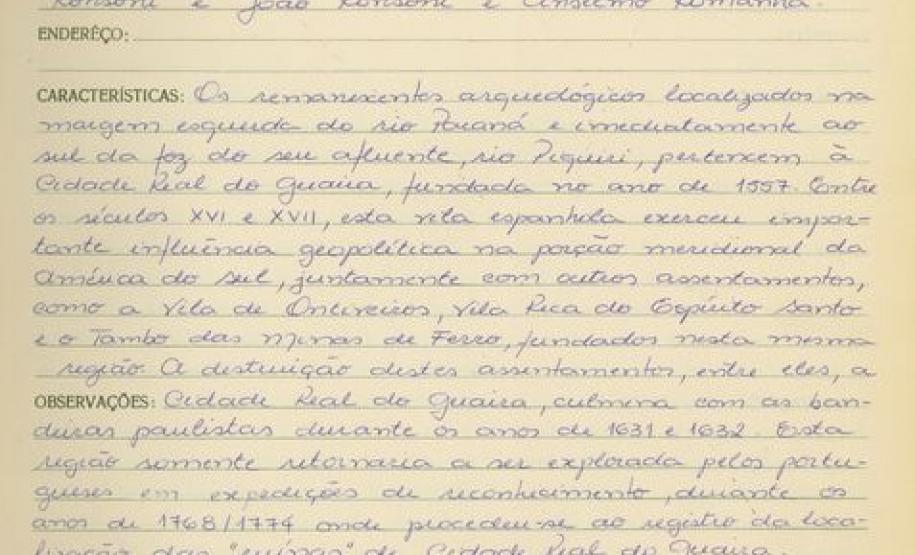 Ronsoni e João Ronsoni e Anselmo Romanha.
ENDERÊÇO:
CARACTERÍSTICAS: Os remanescentes arqueológicos localizados na
margem esquerda do rio Paraná e imediatamente ao
sul da foz do seu afluente, rio Piquiri, pertencem à
Cidade Real do Guaíra, fundada no ano de 1557. Entre
os séculos XVI e XVII, esta vila espanhola exerceu impor-
tante influência geopolítica na porção meridional da
América do Sul, juntamente com outros assentamentos,
como a Vila de Ontiveiros, Vila Rica do Espírito Santo
e o Tambo das Minas de Ferro, fundados nesta mesma
região. A destruição destes assentamentos, entre eles, a
OBSERVAÇÕES: Cidade Real do Guaíra, culmina com as ban-
deiras paulistas durante os anos de 1631 e 1632. Esta
região somente retornaria a ser explorada pelos portu-
gueses em expedições de reconhecimento, durante os
anos de 1768/1774 onde procedeu-se ao registro da loca-
lização das "ruínas" de Cidade Real do Guaíra.